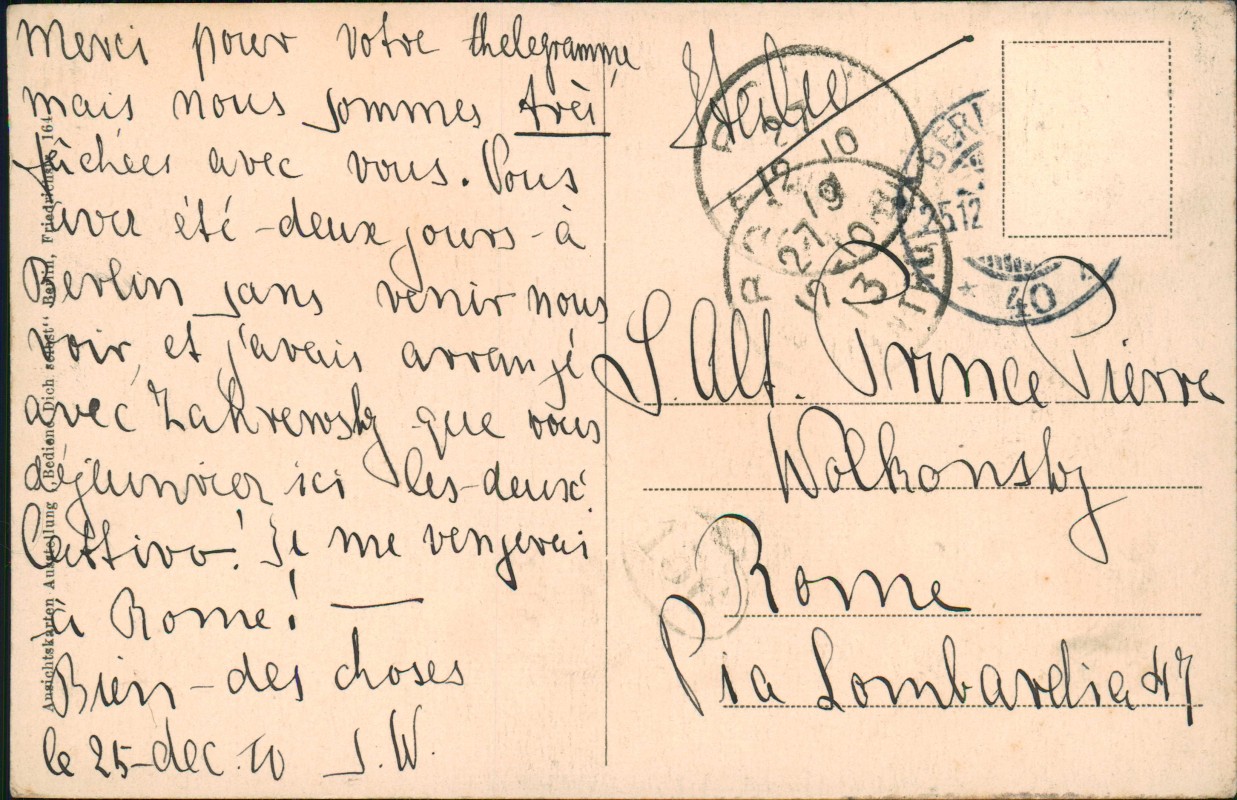 Merci pour votre thelegramme,
mais nous sommes très
fâchées avec vous. Vous
avez été-deux jours-à
Berlin sans venir nous
voir, et j'avais arrangé
avec Zakrewsky que vous
déjeunriez ici les-deux!
Cattivo! Je me vengerai
à Rome! —
Bien-des choses
le 25-dec. 10 S. W.
Ansichtskarten Ausstellung „Bediene Dich selbst“ Berlin, Friedrichstr. 164
27
12 10
ROMA
19
27
12 10
BERLIN
25 12
* 40
S. Alt. Prince Pierre
Wolkonsky
Rome
Via Lombardia 47